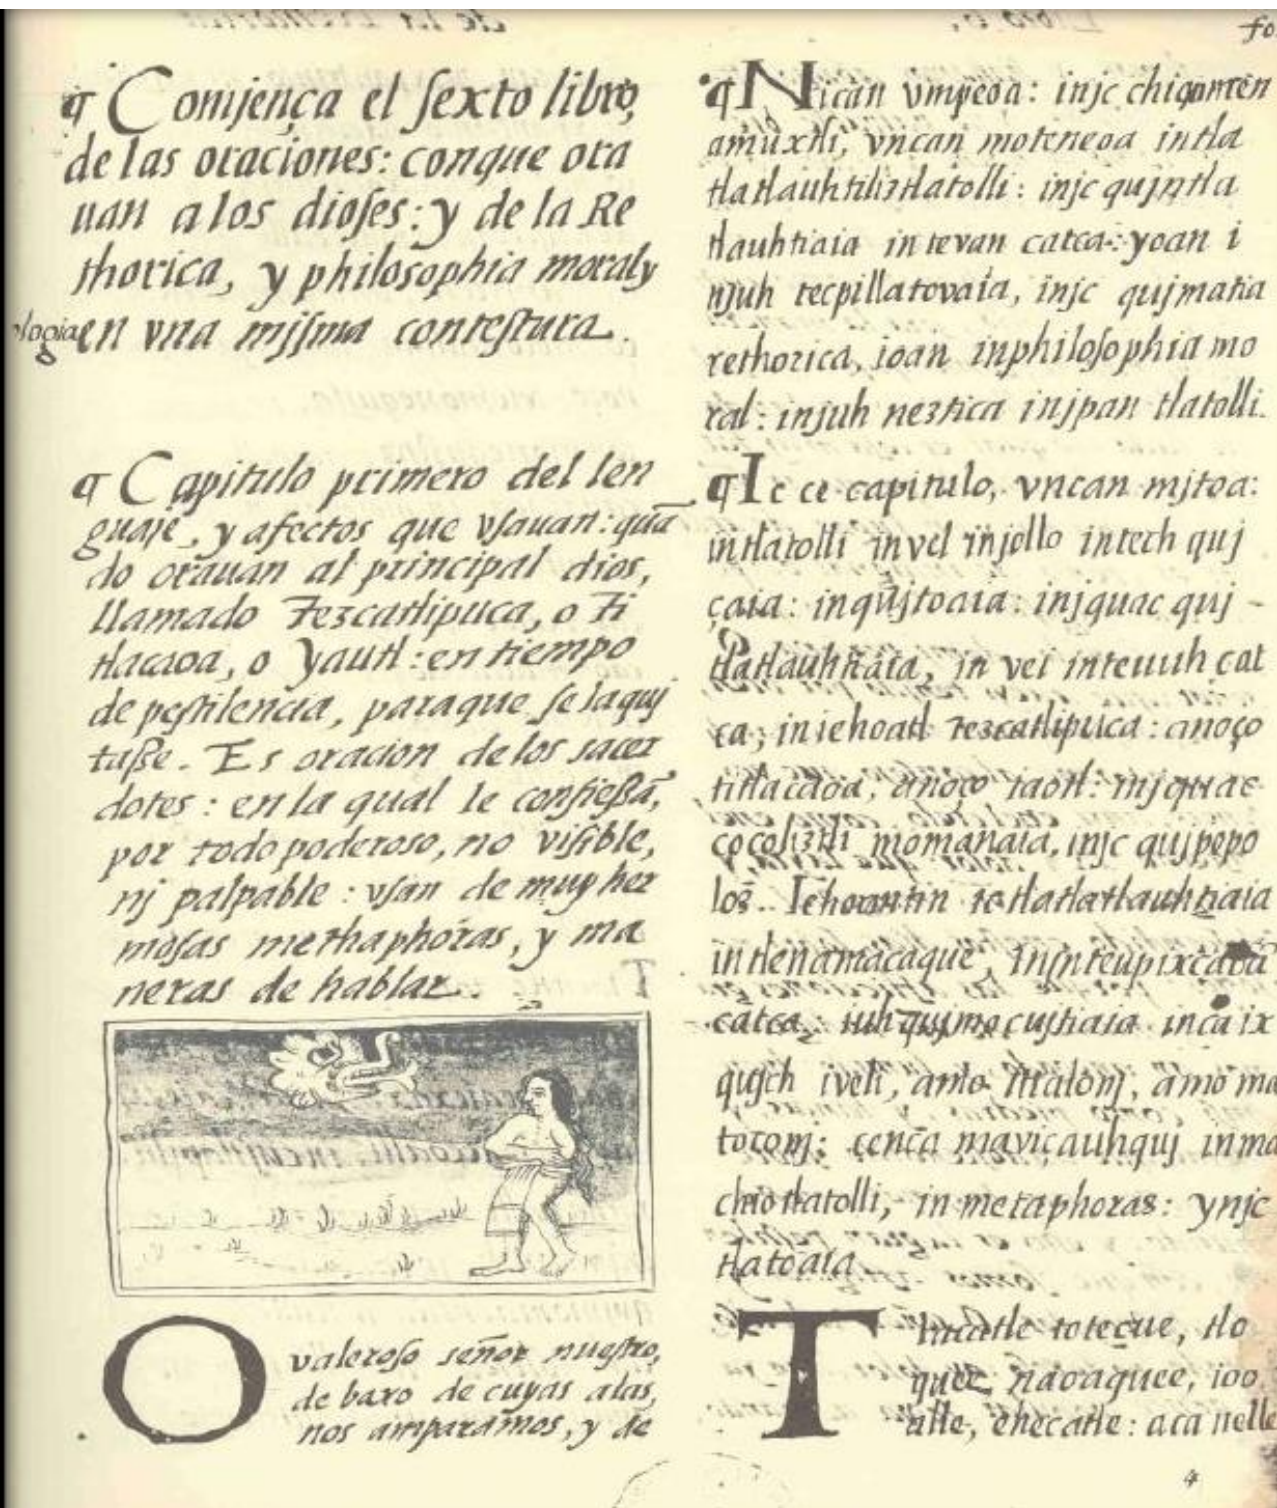 fo
¶ Comjença el sexto libro,
de las oraciones: conque ora
uan a los dioses: y de la Re
thorica, y philosophia moraly
logia en vna misma contestura.
¶ Capitulo primero del len
guaje, y afectos que vsauan: quã
do orauan al principal dios,
llamado Tezcatlipuca, o Ti
tlacaoa, o Yautl: en tiempo
de pestilencia, paraque se laquj
tasse. Es oracion de los sacer
dotes: en la qual le confiessã,
por todo poderoso, no visible,
nj palpable: vsan de muy her
mosas methaphoras, y ma
neras de hablar.
O valeroso señor nuestro,
de baxo de cuyas alas,
nos amparamos, y de
¶ Nican vmpeoa: injc chiquacen
amuxtli, vncan moteneoa intla
tlatlauhtiliztlatolli: injc qujntla
tlauhtiaia in tevan catca: yoan i
njuh tecpillatovaia, injc qujmatia
rethorica, ioan inphilosophia mo
ral: injuh neztica injpan tlatolli.
¶ Ic ce capitulo, vncan mjtoa:
intlatolli invel injollo intech quj
çaia: inqujtoaia: injquac quj-
tlatlauhtiaia, in vei inteuuh cat
ca, in iehoatl tezcatlipuca: anoço
titlacaoa, anoço iaotl: injquac
cocoliztli momanaia, injc qujpopo
loz. Iehoantin tetlatlatlauhtiaia
intlenamacaque, Injnteupixcaoa
catca: iuh qujmocujtiaia inca ix
qujch iveli, amo ittalonj, amo ma
toconj: cenca maviçauhquj inma
chiotlatolli, in metaphoras: ynjc
tlatoaia.
Tlacatle totecue, tlo
quee navaquee, ioo
alle, ehecatle: aca nelle
4